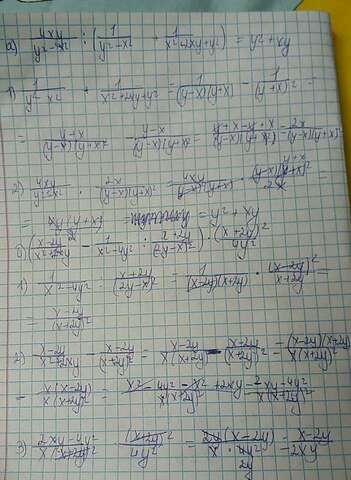 а) 4xy / (y²-x²) : (1/(y²-x²) + 1/(x²+2xy+y²)) = y²+xy
1) 1/(y²-x²) + 1/(x²+2xy+y²) = 1/((y-x)(y+x)) - 1/(y+x)² =
= (y+x)/((y-x)(y+x)²) (y-x)/((y-x)(y+x)²) = (y+x-y+x)/((y-x)(y+x)²) = 2x/((y-x)(y+x)²)
2) 4xy/(y²-x²) : 2x/((y-x)(y+x)²) = 4xy/((y-x)(y+x)) · (y-x)(y+x)²/2x =
= 2y(y+x) = y²+xy
б) ((x-2y)/(x²+2xy) - 1/(x²-4y²) : (x+2y)/(2y-x)²) · (x+2y)²/4y²
1) 1/(x²-4y²) : (x+2y)/(2y-x)² = 1/((x-2y)(x+2y)) · (x-2y)²/(x+2y) =
= (x-2y)/(x+2y)²
2) (x-2y)/(x²+2xy) - (x-2y)/(x+2y)² = (x-2y)/(x(x+2y)) - (x-2y)/(x+2y)² = (x-2y)(x+2y)/(x(x+2y)²)
- x(x-2y)/(x(x+2y)²) = (x²-4y²-x²+2xy)/(x(x+2y)²) = (2xy-4y²)/(x(x+2y)²)
3) (2xy-4y²)/(x(x+2y)²) · (x+2y)²/4y² = 2y(x-2y)/(x·4y²) = (x-2y)/2xy